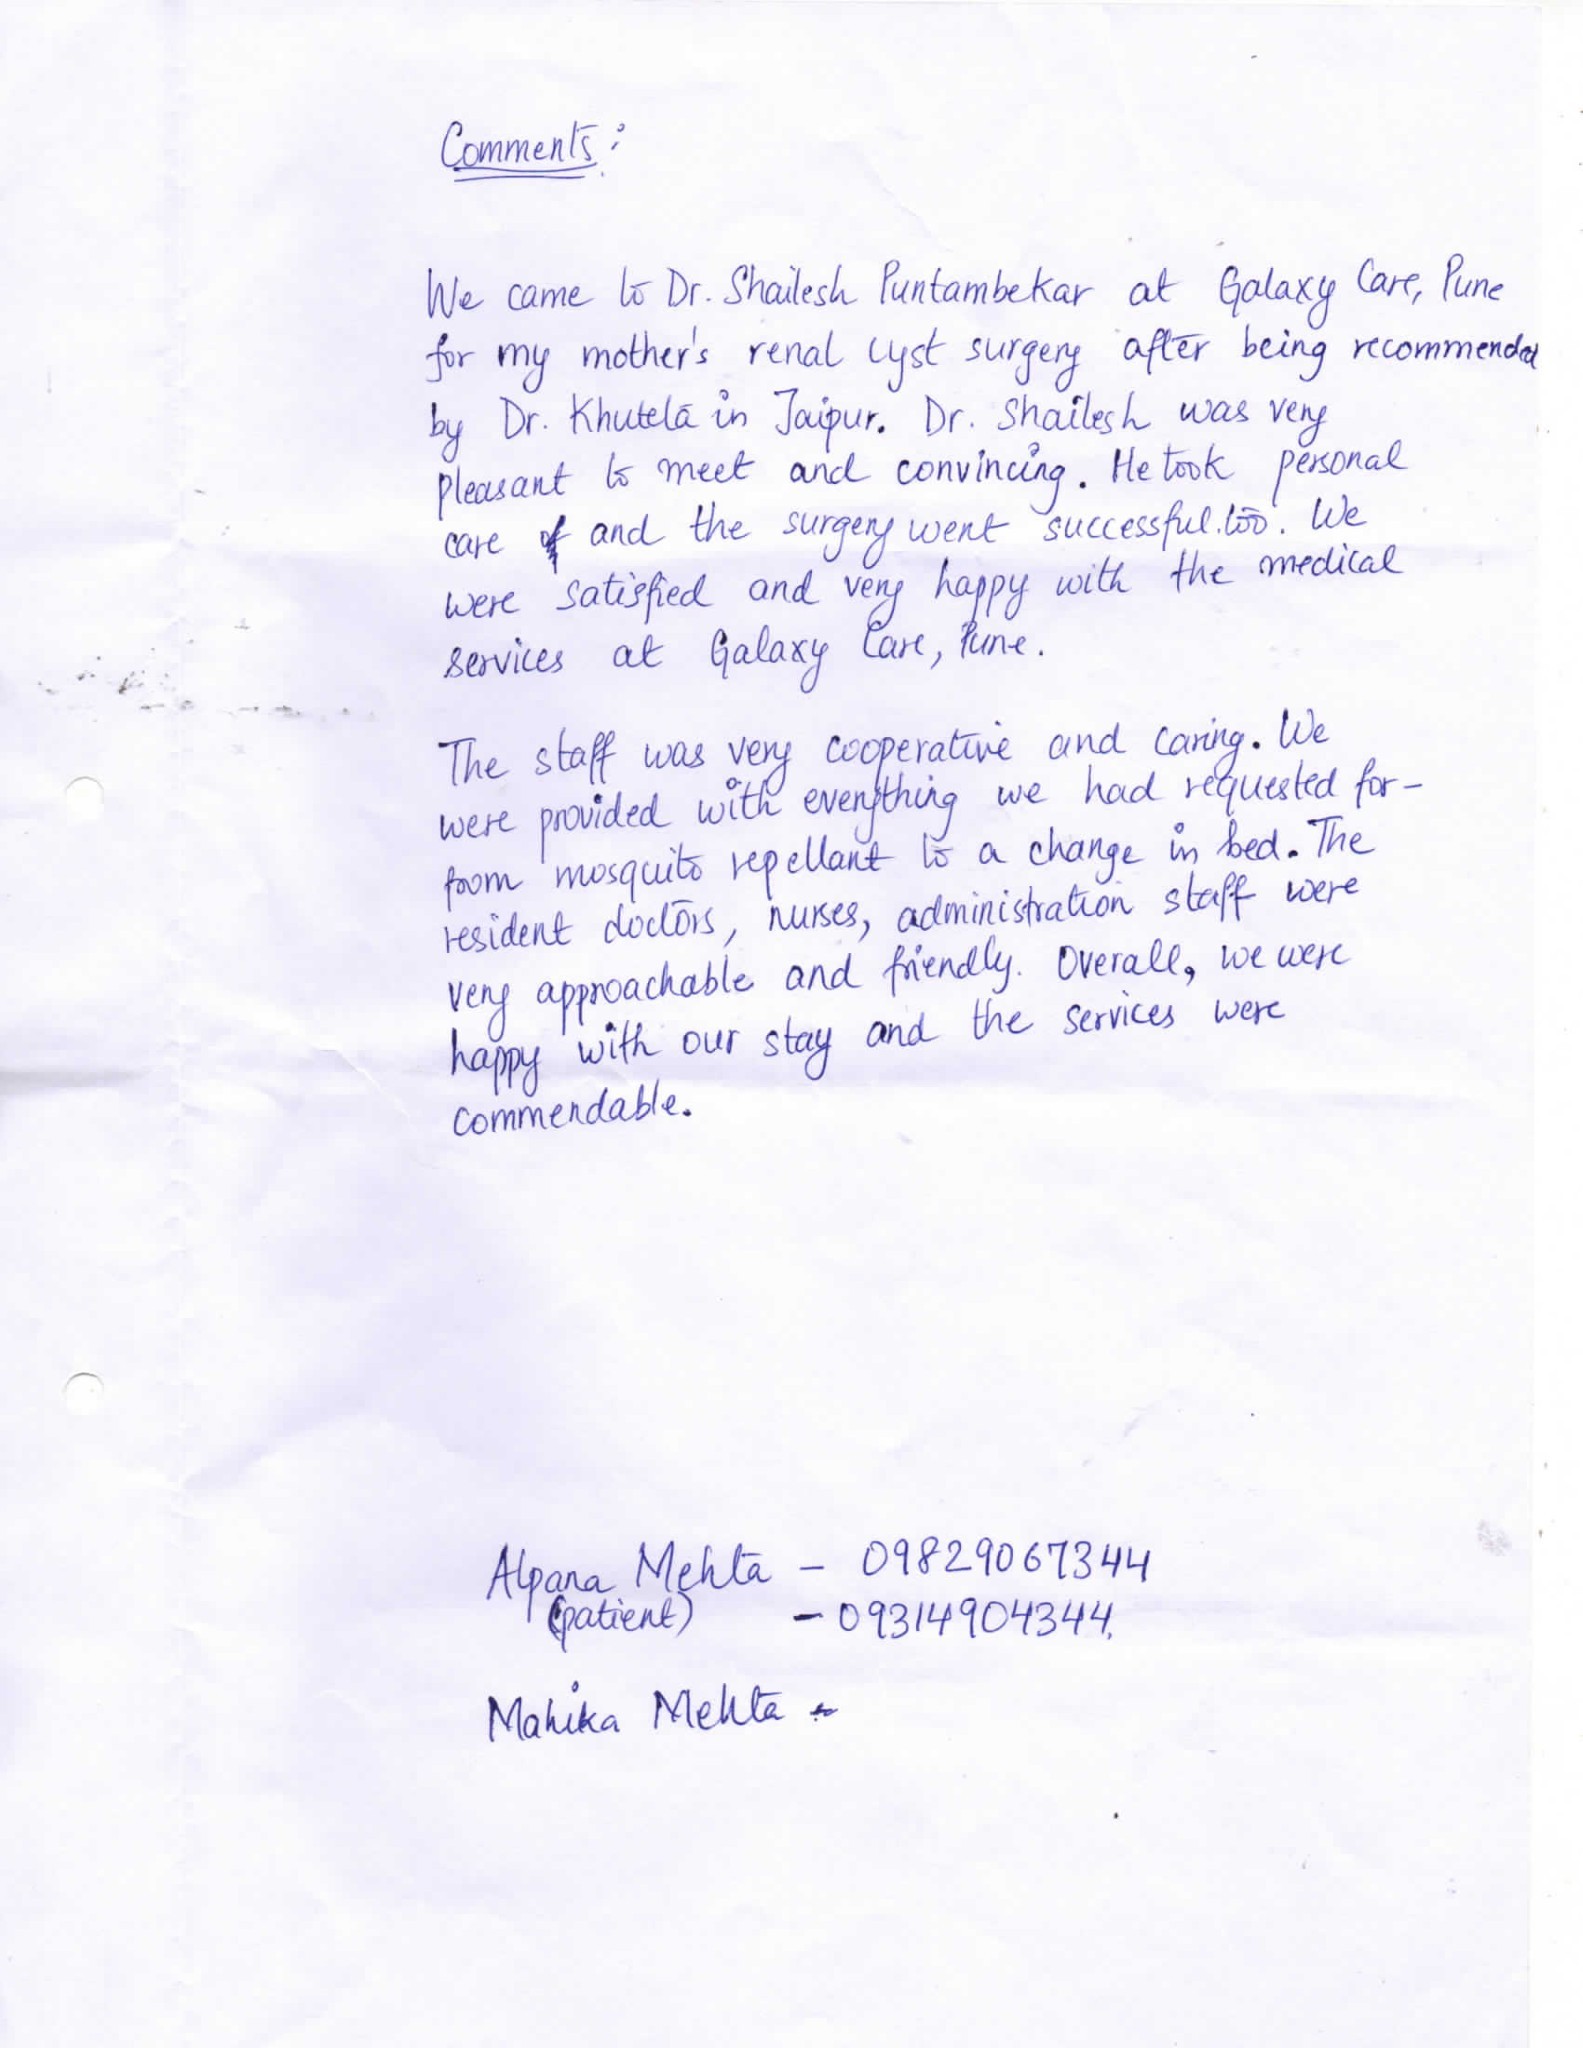 Comments:
We came to Dr. Shailesh Puntambekar at Galaxy Care, Pune
for my mother's renal cyst surgery after being recommended
by Dr. Khutela in Jaipur. Dr. Shailesh was very
pleasant to meet and convincing. He took personal
care and the surgery went successful too. We
were satisfied and very happy with the medical
services at Galaxy Care, Pune.
The staff was very cooperative and caring. We
were provided with everything we had requested for-
from mosquito repellant to a change in bed. The
resident doctors, nurses, administration staff were
very approachable and friendly. Overall, we were
happy with our stay and the services were
commendable.
Alpana Mehta - 09829067344
(patient) - 09314904344.
Mahika Mehta